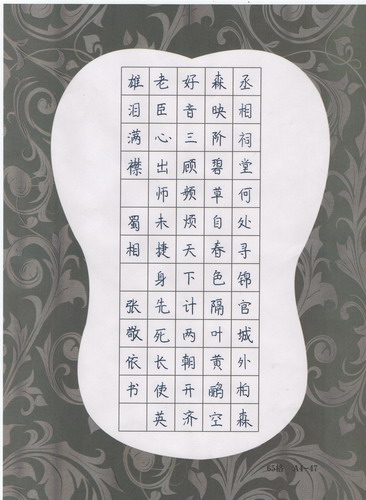 丞相祠堂何处寻锦官城外柏森
森映阶碧草自春色隔叶黄鹂空
好音三顾频烦天下计两朝开齐
老臣心出师未捷身先死长使英
雄泪满襟 蜀相 张敬依书
65格 A4-47